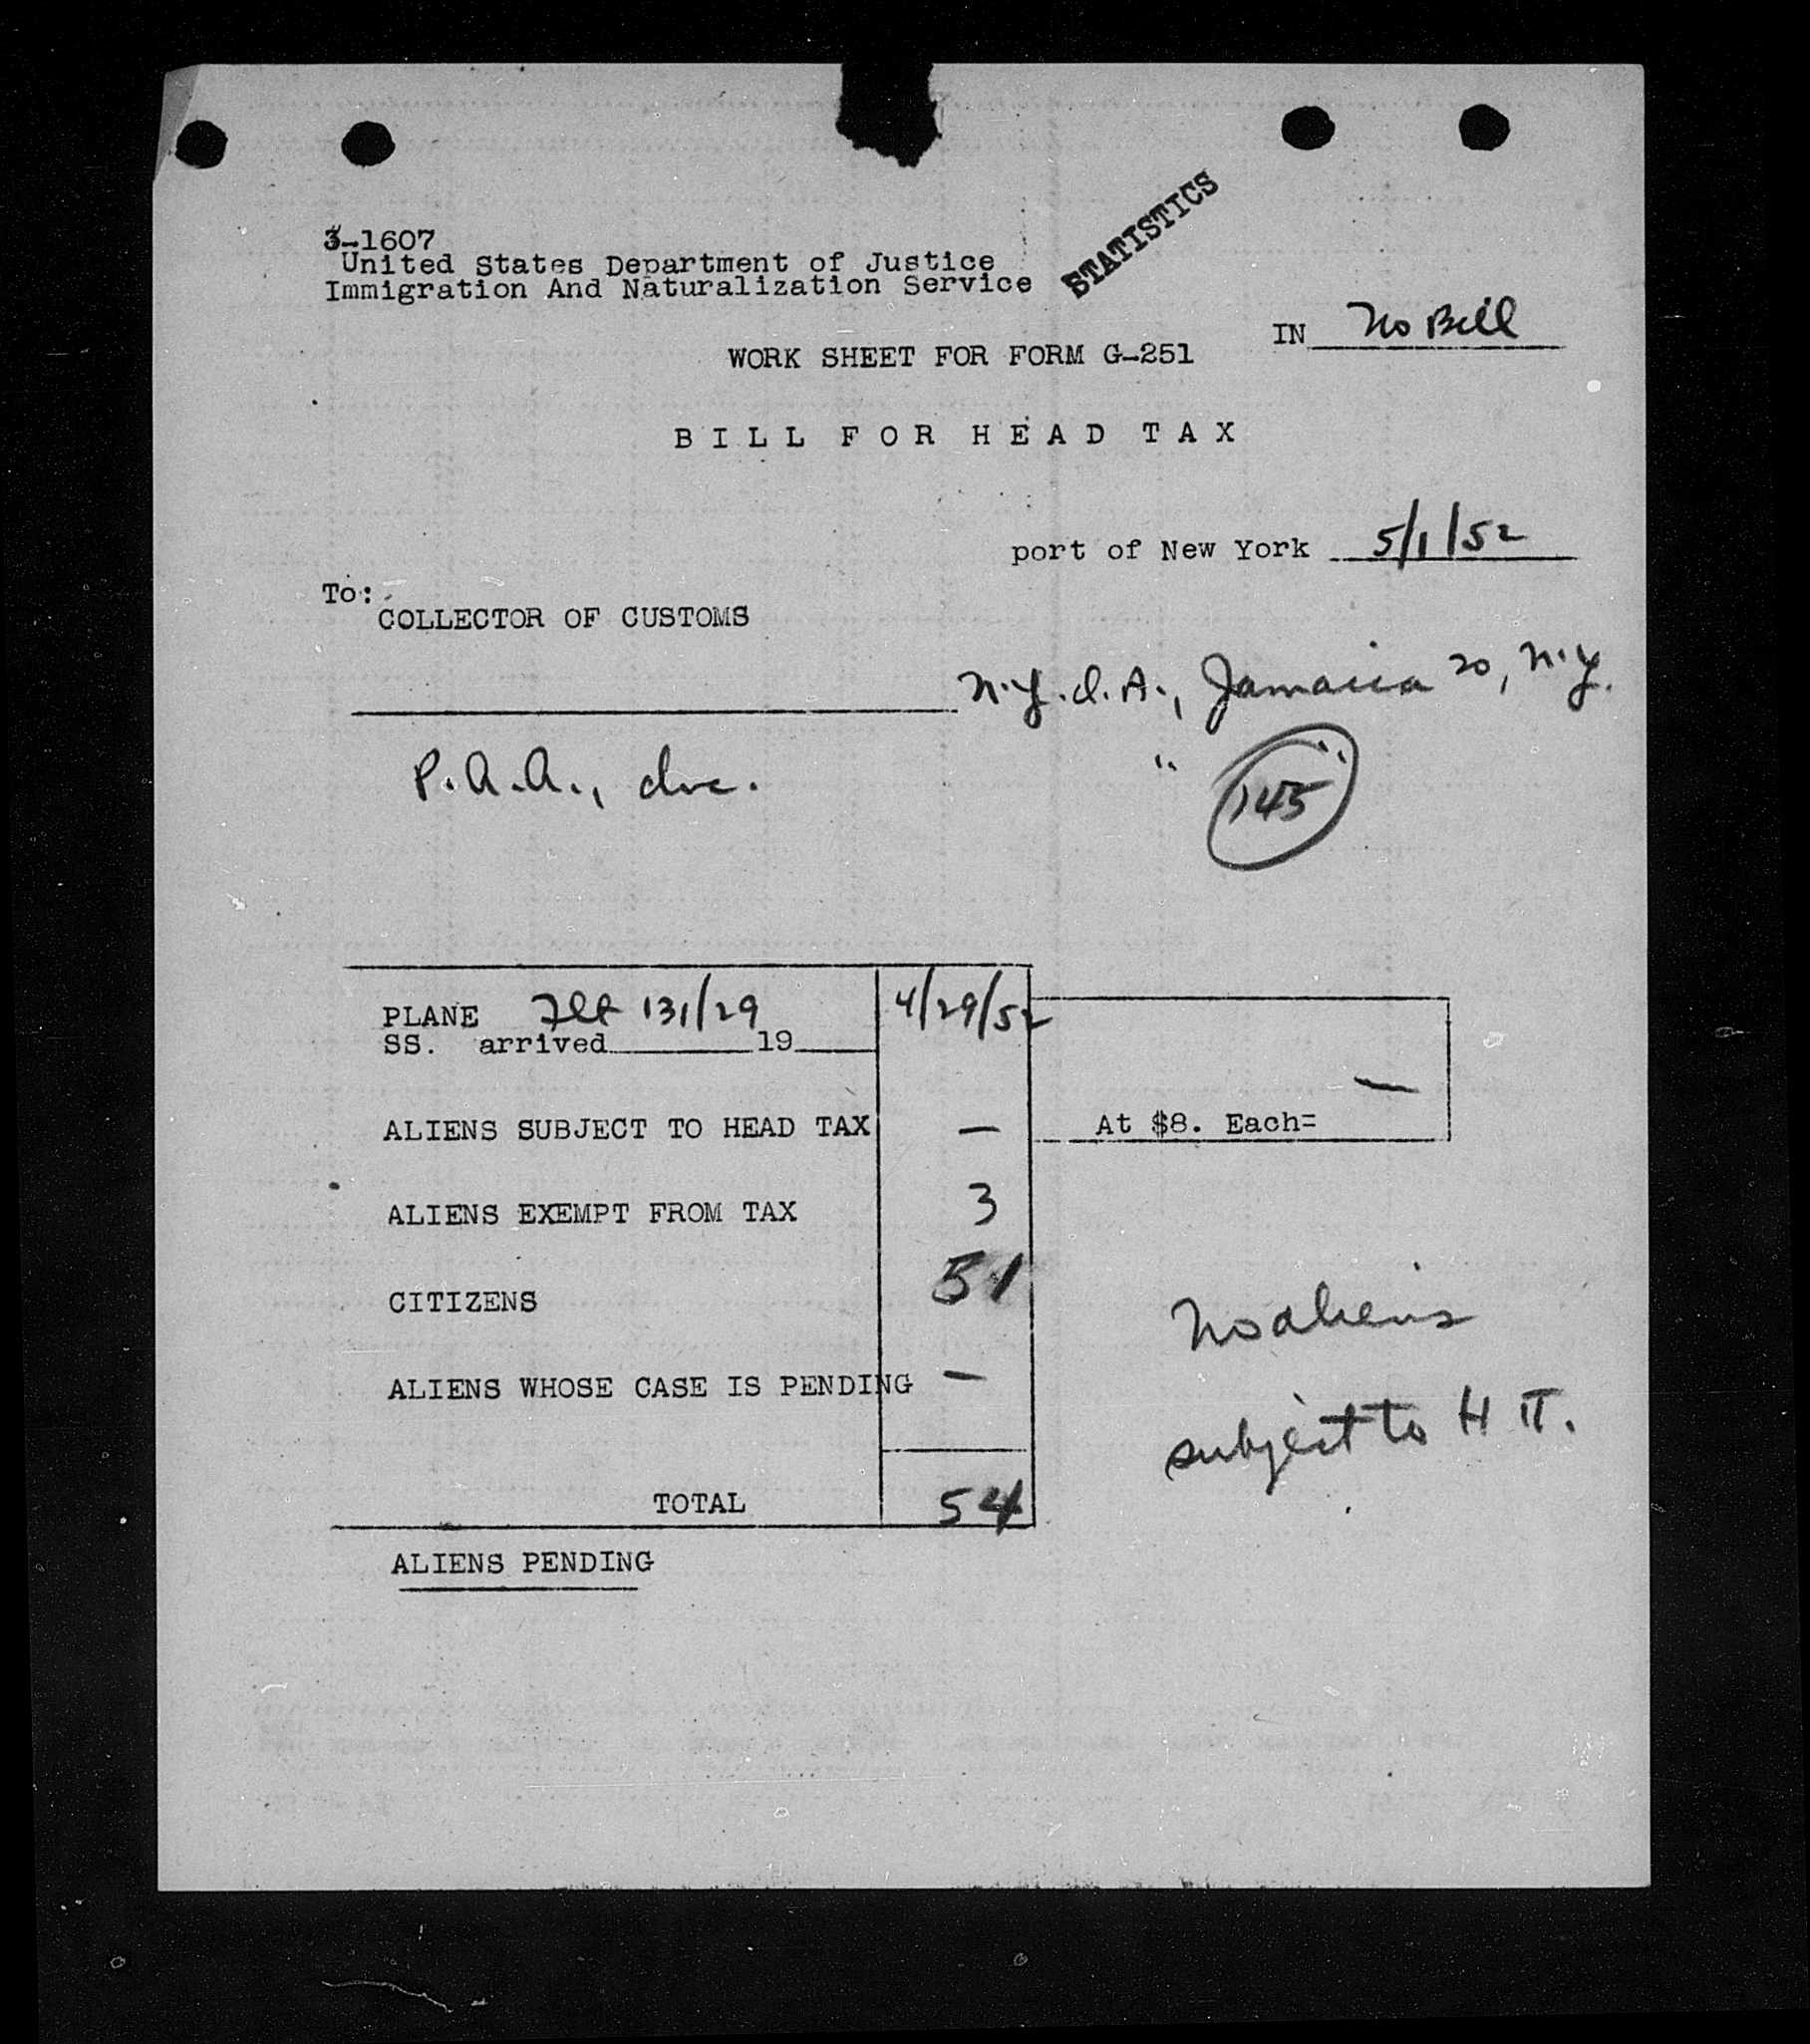 3-1607
United States Department of Justice
Immigration And Naturalization Service
STATISTICS
IN No Bill
WORK SHEET FOR FORM G-251
BILL FOR HEAD TAX
port of New York 5/1/52
To:
COLLECTOR OF CUSTOMS
N.Y.I.A., Jamaica 20, N.Y.
P.A.A., Inc. " "
145
PLANE Flt 131/29 4/29/52
SS. arrived 19
ALIENS SUBJECT TO HEAD TAX — At $8. Each= —
ALIENS EXEMPT FROM TAX 3
CITIZENS 51
No aliens
ALIENS WHOSE CASE IS PENDING —
subject to H T.
TOTAL 54
ALIENS PENDING